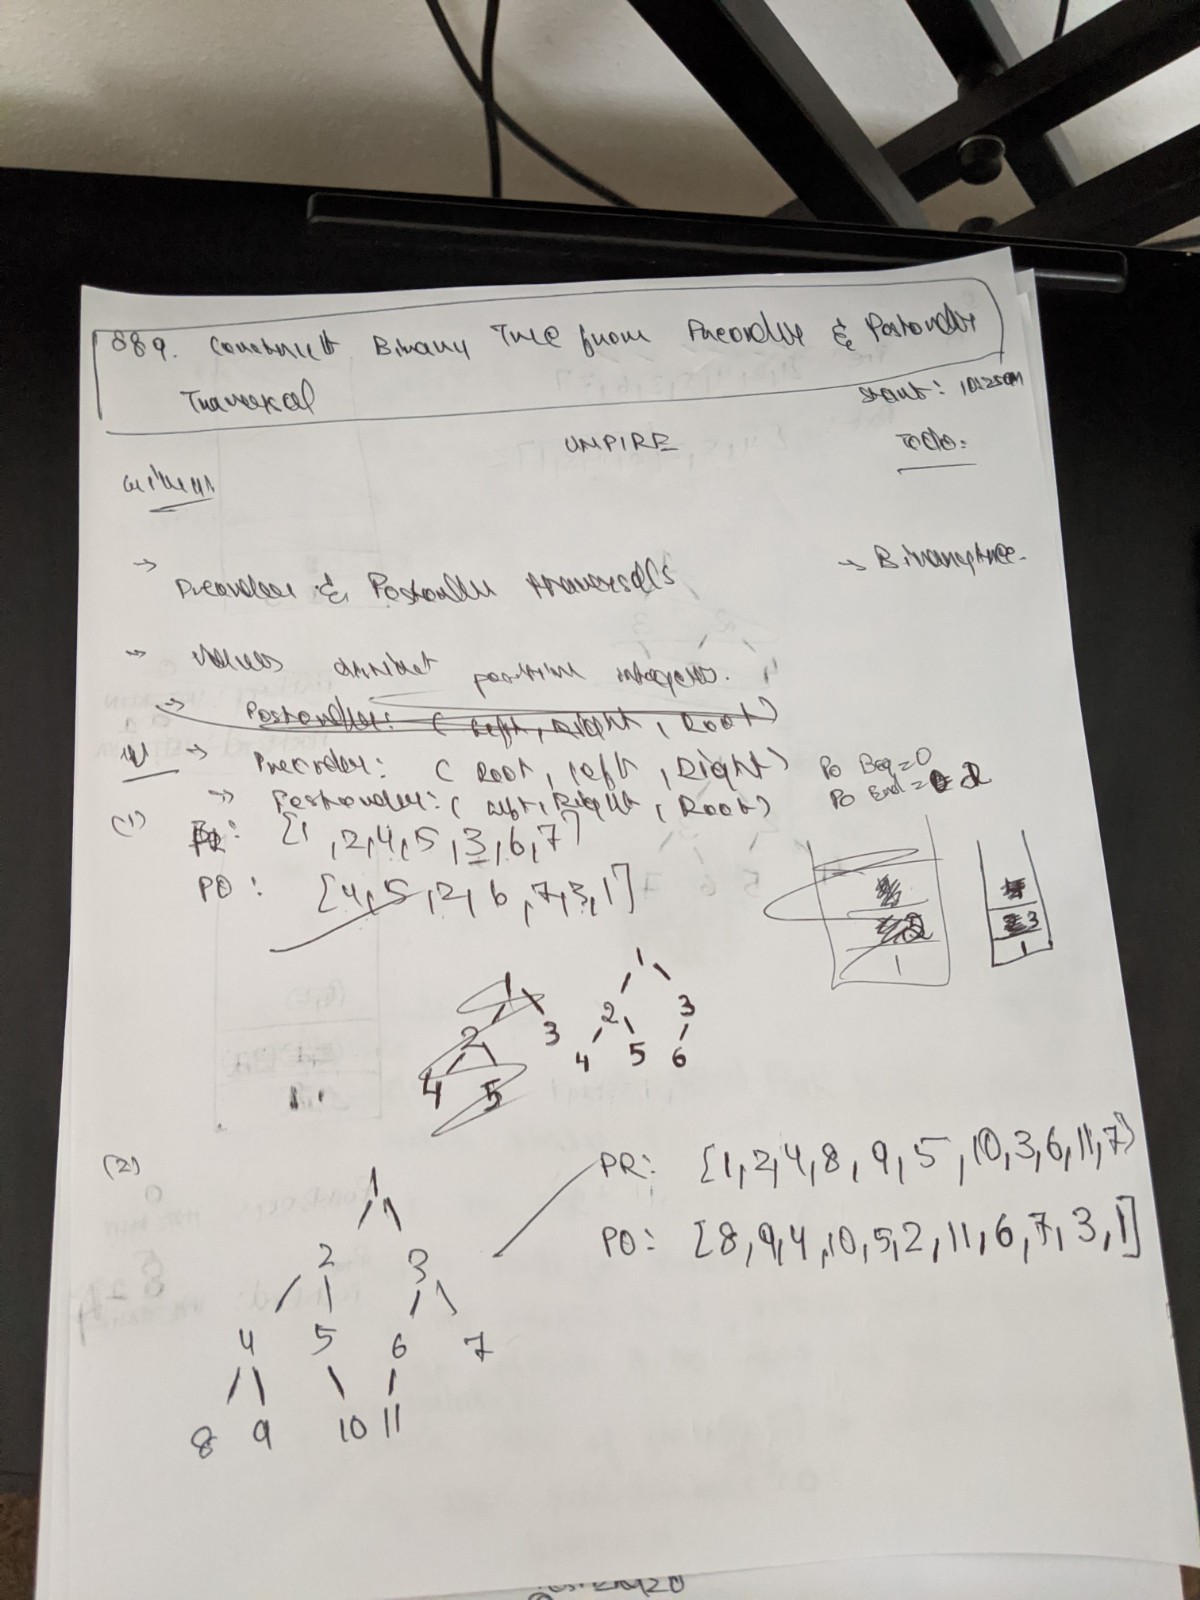 889. Construct Binary Tree from Preorder & Postorder
Traversal
Start: 10:25AM
UMPIRE
TODO:
Given:
→ Preorder & Postorder traversals
→ Binarytree.
→ Values distinct positive integers.
→ Postorder: (Left, Right, Root)
U → Preorder: (Root, left, Right)
Po Beg = 0
→ Postorder: (Left, Right, Root)
Po End =
(1) PR: [1, 2, 4, 5, 3, 6, 7]
PO: [4, 5, 2, 6, 7, 3, 1]
3
1
1
1
1
2 3
2 3
4 5 6
4 5
(2)
PR: [1, 2, 4, 8, 9, 5, 10, 3, 6, 11, 7]
PO: [8, 9, 4, 10, 5, 2, 11, 6, 7, 3, 1]
1
2 3
4 5 6 7
8 9 10 11